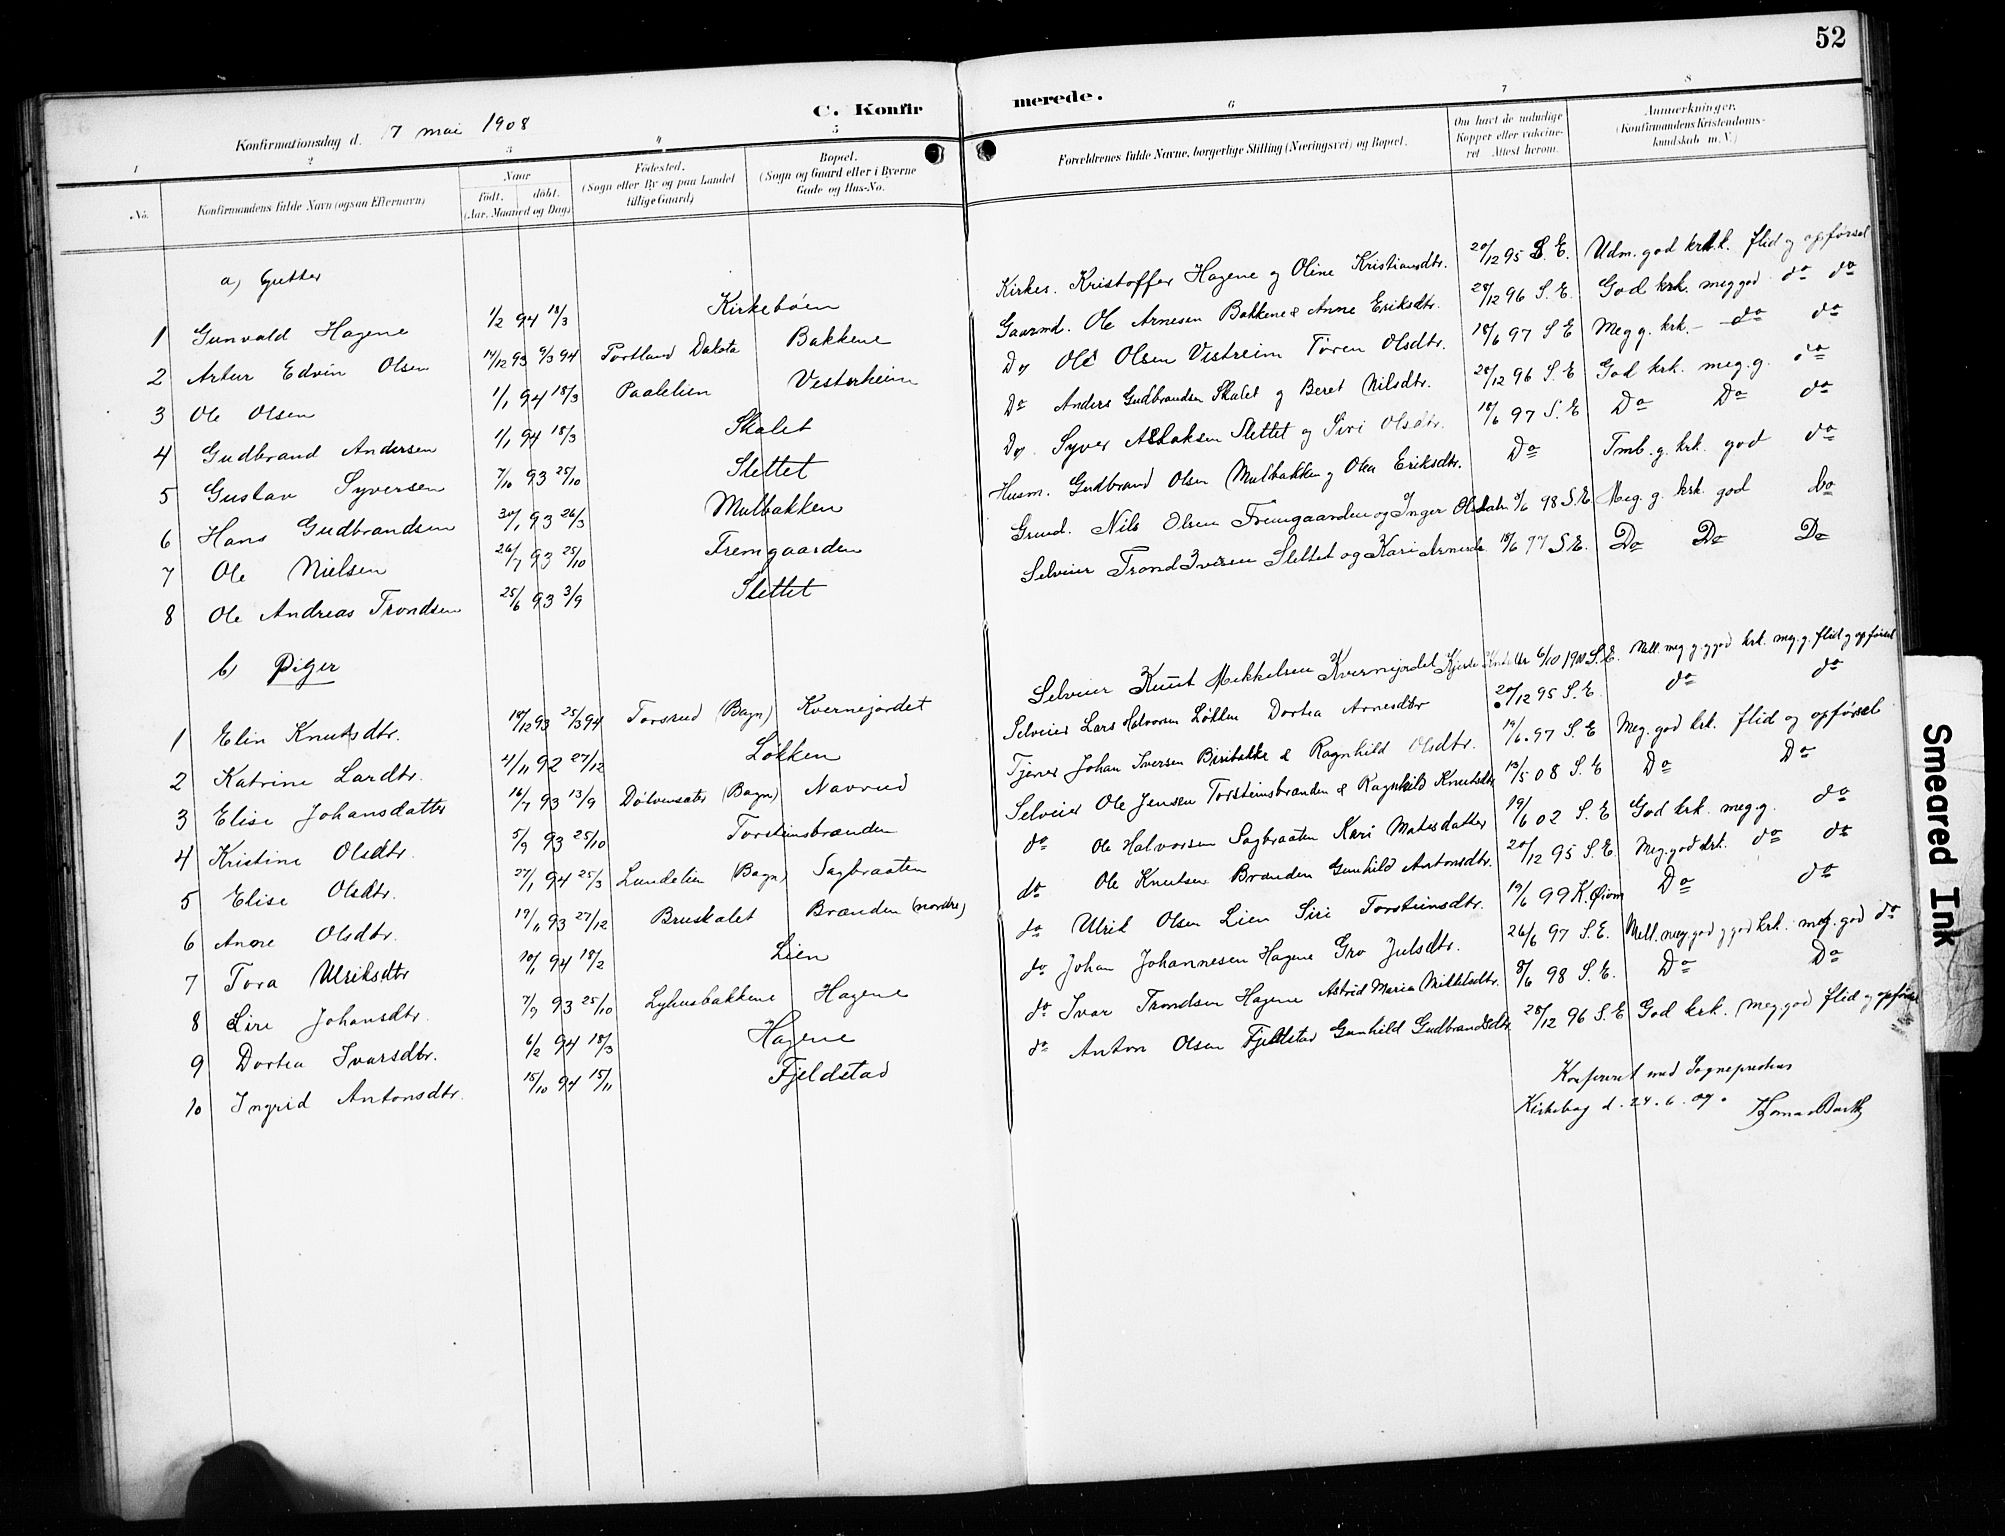 52
C. Konfirmerede.
Konfirmationsdag d. 7 mai 1908
1 2 3 4 5 6 7 8
No.
Konfirmandens fulde Navn (ogsaa Efternavn)
Naar
født. døbt.
(Aar. Maaned og Dag)
Fødested.
(Sogn eller By og paa Landet
tillige Gaard)
Bopæl.
(Sogn og Gaard eller i Byerne
Gade og Hus-No.
Forældrenes fulde Navne, borgerlige Stilling (Næringsvei) og Bopæl.
Om havt de naturlige
Kopper eller vakcine-
ret Attest herom.
Anmerkninger.
(Konfirmandens Kristendoms-
kundskab m. V.)
a) Gutter
1 Gunvald Hagene 1/2 94 18/3 Kirkebøen Kirkes. Kristoffer Hagene og Oline Kristiansdtr. 20/12 95 S. E. Udm. god krk. flid og opførsel
2 Artur Edvin Olsen 14/12 93 9/3 94 Portland Dakota Bakkene Gaarmd. Ole Arnesen Bakkene & Anne Eriksdtr. 28/12 96 S. E. God krk. meg god do do
3 Ole Olsen 1/1 94 18/3 Paalelien Vesterheim Do Ole Olsen Vestreim Tøren Olsdtr. 18/6 97 S E Meg g. krk. - do do
4 Gudbrand Andersen 1/1 94 18/3 Skalet Do Anders Gudbrandsen Skalet og Beret Nilsdtr. 28/12 96 S. E God krk. meg. g. do
5 Gustav Syversen 7/10 93 25/10 Slettet Do Syver Aslaksen Slettet og Siri Olsdtr. 18/6 97 S. E Do Do do
6 Hans Gudbrandsen 30/1 93 26/3 Mulbakken Husm. Gudbrand Olsen Mulbakken og Olea Eriksdtr. Do Tmb. g. krk. god do
7 Ole Nielsen 26/7 93 25/10 Fremgaarden Grund. Nils Olsen Fremgaarden og Inger 8/6 98 S. E. Meg. g. krk. god Do
8 Ole Andreas Trondsen 25/6 93 3/9 Slettet Selveier Trond Iversen Slettet og Kari 18/6 97 S. E. Do Do Do
b) Piger
1 Elin Knutsdtr. 18/12 93 25/3 94 Torsrud (Bagn) Kvernejordet Selveier Knut Mekkelsen Kvernejordet 6/10 1900 S. E. Mell. meg g. og god krk. meg. g. flid og opførsel
2 Katrine Larsdtr. 4/11 92 27/12 Løkken Selveier Lars Halvorsen Løkken Dortea Arnesdtr 20/12 95 S. E. do do
3 Elise Johansdatter 16/7 93 13/9 (Bagn) Navrud Tjener Johan Iversen Biribakke & Ragnhild Olsdtr. 19/6. 97 S. E Meg. god krk. flid og opførsel
4 Kristine Olsdtr. 5/9 93 25/10 Torsteinsbraaden Selveier Ole Jensen Torsteinsbraaden & Ragnhild Knutsdtr 13/5 08 S. E Do Do
5 Elise Olsdtr. 27/1 94 25/3 Lundelien (Bagn) Sagbraaten do Ole Halvorsen Sagbraaten Kari Matesdatter 19/6 02 S. E God krk. meg. g. do
6 Anne Olsdtr. 17/11 93 27/12 Bruskalet Brænden (nordre) do Ole Knutsen Brænden Gunhild Antonsdtr. 20/12 95 S. E. Meg. god krk. do do
7 Tora Ulriksdtr 10/1 94 18/2 Lien do Ulrik Olsen Lien Siri Torsteinsdtr. 19/6 99 K. Øium Do do
8 Siri Johansdtr. 7/9 93 25/10 Lyhusbakkene Hagene do Johan Johannesen Hagene Gro Julsdtr. 26/6 97 S. E. Mell. meg. god og god krk. meg. god do
9 Dortea Ivarsdtr. 6/2 94 18/3 Hagene do Ivar Trondsen Hagene Astrid Maria Mikkelsdtr. 8/6 98 S. E. Do Do
10 Ingrid Antonsdtr. 15/10 94 15/11 Fjeldstad do Anton Olsen Fjeldstad Gunhild Gudbrandsdtr. 28/12 96 S. E God krk. meg. god flid og opførsel
Konfereret med Sogneprestens
Kirkebog d. 24. 6. 09.
Smeared Ink